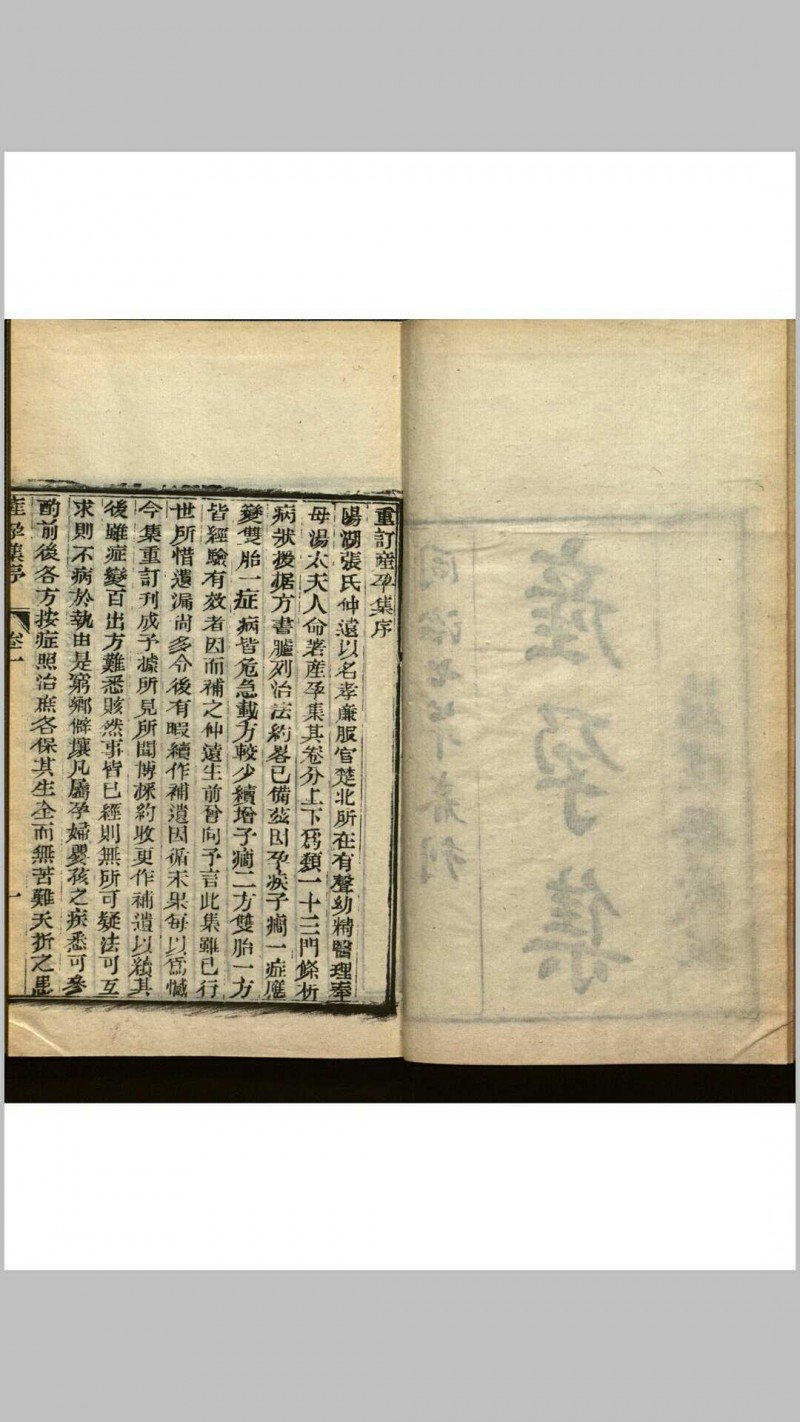 重訂産孕集序
陽湖張氏仲遠以名孝廉服官楚北所在有聲幼精醫理奉
母湯太夫人命著産孕集其卷分上下爲類一十三門條析
病狀援据方書臚列治法約畧已備茲因孕疾子癎一症應
變雙胎一症病皆危急載方較少續增子癎二方雙胎一方
皆經驗有效者因而補之仲遠生前曾向予言此集雖已行
世所惜遺漏尚多今後有暇續作補遺因循未果每以爲憾
今集重訂刊成予據所見所聞博採約收更作補遺以續其
後雖症變百出方難悉賅然事皆已經則無所可疑法可互
求則不病於執由是窮鄉僻壤凡屬孕婦嬰孩之疾悉可參
酌前後各方按症照治庶各保其生全而無苦難夭折之患
産孕集序 卷一 一
産孕集